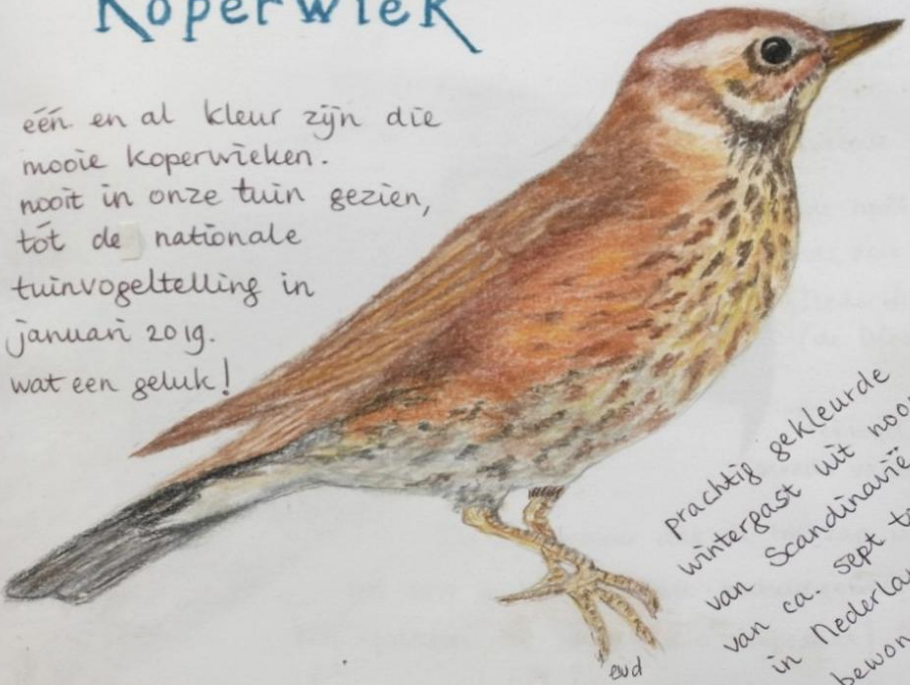 Koperwiek
één en al kleur zijn die
mooie koperwieken.
nooit in onze tuin gezien,
tót de nationale
tuinvogeltelling in
januari 2019.
wat een geluk!
prachtig gekleurde
wintergast uit
van Scandinavië
van ca. sept
in
evd